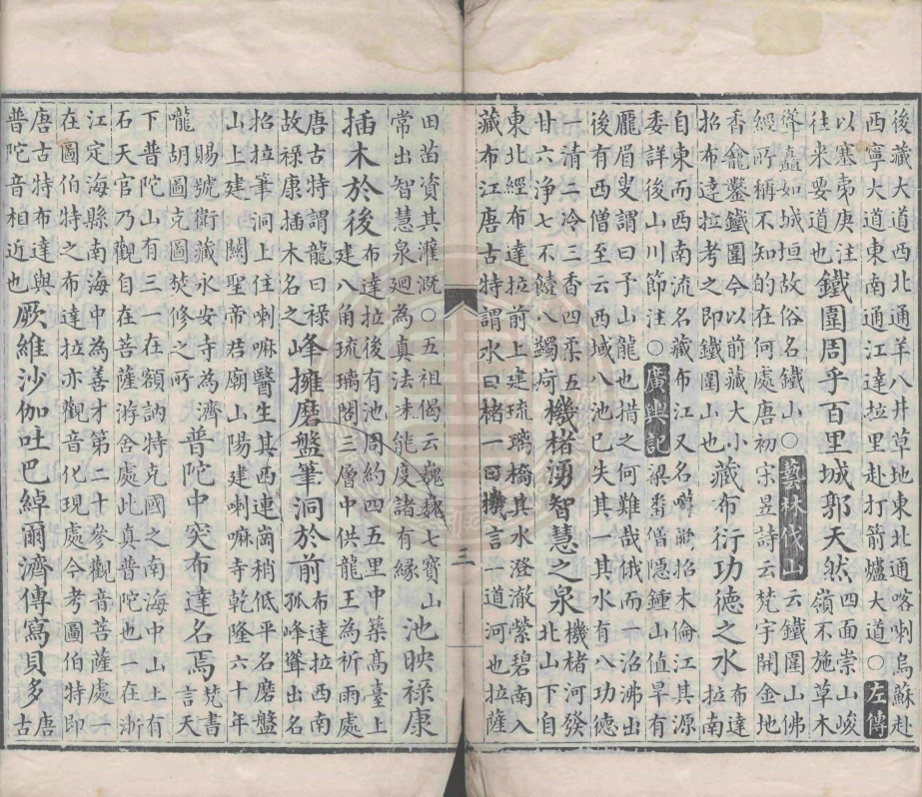 後藏大道西北通羊八井草地東北通喀喇烏蘇赴
西寧大道東南通江達拉里赴打箭爐大道○左傳
以塞夷庚注
往來要道也
鐵圍周乎百里城郭天然
四面崇山峻
嶺不施草木
峰矗如城垣故俗名鐵山○藝林伐山云鐵圍山佛
經所稱不知的在何處唐初宋昱詩云梵宇開金地
香龕鑿鐵圍今以前藏大小
招布達拉考之即鐵圍山也
藏布衍功德之水
布達
拉南
自東而西南流名藏布江又名噶招木倫江其源
委詳後山川節注○廣輿記梁番僧隱鍾山值旱有
厖眉叟謂曰予山龍也措之何難哉俄而一沼沸出
後有西僧至云西域八池已失其一其水有八功德
一清二冷三香四柔五
甘六淨七不饐八蠲疴
機楮湧智慧之泉
機楮河發
北山下自
東北經布達拉前上建琉璃橋其水澄澈縈碧南入
藏布江唐古特謂水曰楮一曰機言一道河也拉薩
田苗資其灌溉○五祖偈云巍巍七寶山
常出智慧泉廻為真法味能度諸有緣
池映祿康
插木於後
布達拉後有池周約四五里中築高臺上
建八角琉璃閣三層中供龍王為祈雨處
唐古特謂龍曰祿
故祿康插木名之
峰擁磨盤筆洞於前
布達拉西南
孤峰聳出名
招拉筆洞上住喇嘛醫生其西連崗稍低平名磨盤
山上建關聖帝君廟山陽建喇嘛寺乾隆六十年
賜號衛藏永安寺為濟
嚨胡圖克圖焚修之所
普陀中突布達名焉
梵書
言天
下普陀山有三一在額訥特克國之南海中山上有
石天官乃觀自在菩薩游舍處此真普陀也一在浙
江定海縣南海中為善才第二十參觀音菩薩處一
在圖伯特之布達拉亦觀音化現處今考圖伯特即
唐古特布達與
普陀音相近也
厥維沙伽吐巴綽爾濟傳寫貝多
唐
古
三